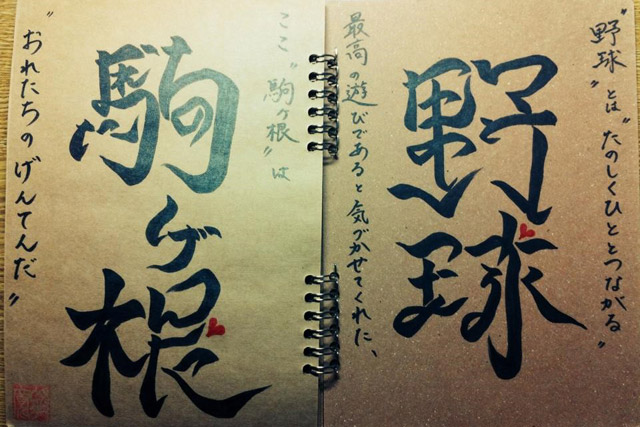 "野球"とは"たのしくひととつながる"
野球
最高の遊びであると気づかせてくれた、
ここ"駒ヶ根"は
駒ヶ根
"おれたちのげんてんだ"